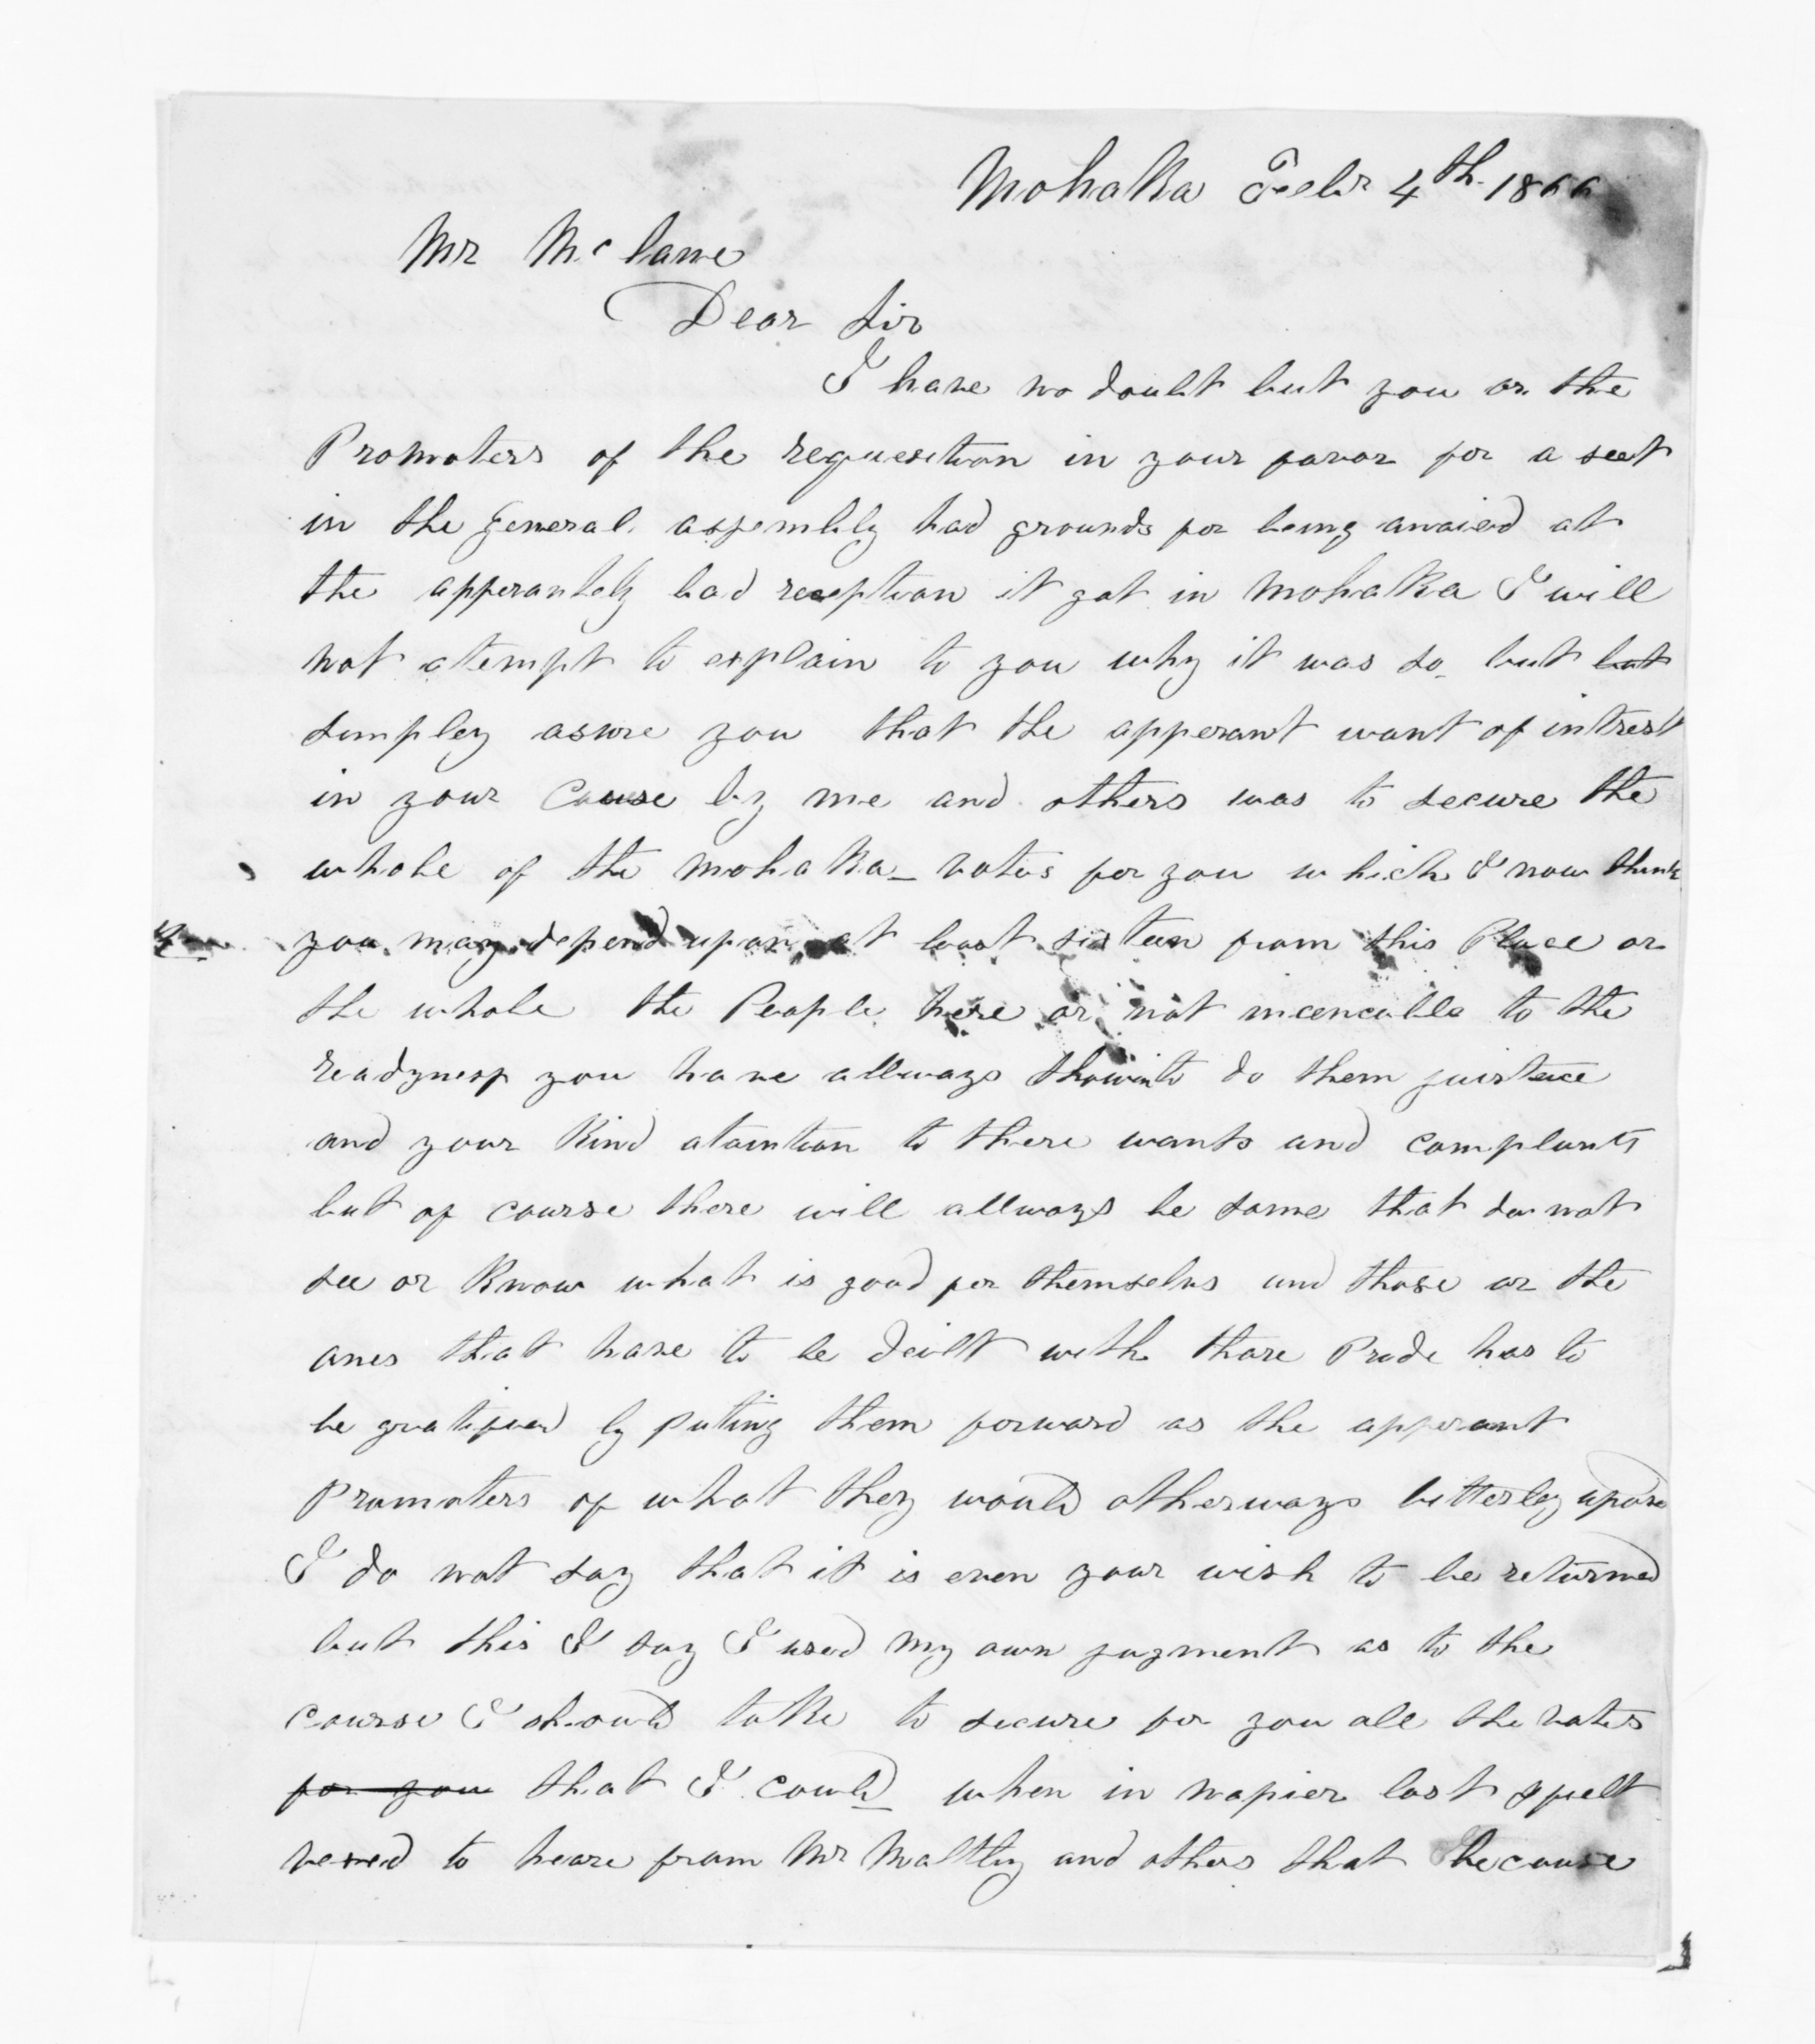 Mohaka Febr 4th. 1866
Mr McLane
Dear Sir
I have no doubt but you or the
Promoters of the requesition in your favor for a seet
in the General assembly had grounds for being anoied at
the apperantely bad reception it got in Mohaka I will
not atempt to explain to you why it was so but but
simpley asure you that the apperant want of intrest
in your Cause by me and others was to secure the
whole of the Mohaka votes for you which I now think
you may depend upon at least sixteen from this Place or
the whole the People here ar not incencable to the
readyness you have allways shown to do them justece
and your Kind atention to there wants and complants
but of course there will allways be some that do not
see or Know what is good for themselvs and those ar the
ones that have to be dealt with thare Pride has to
be gratified by puting them forward as the apperant
Promoters of what they would otherways bitterley upose
I do not say that it is even your wish to be returned
but this I say I used my own jugment as to the
course I should take to secure for you all the votes
for you that I could when in Napier last I felt
vexed to heare from Mr Maltby and others that the cause